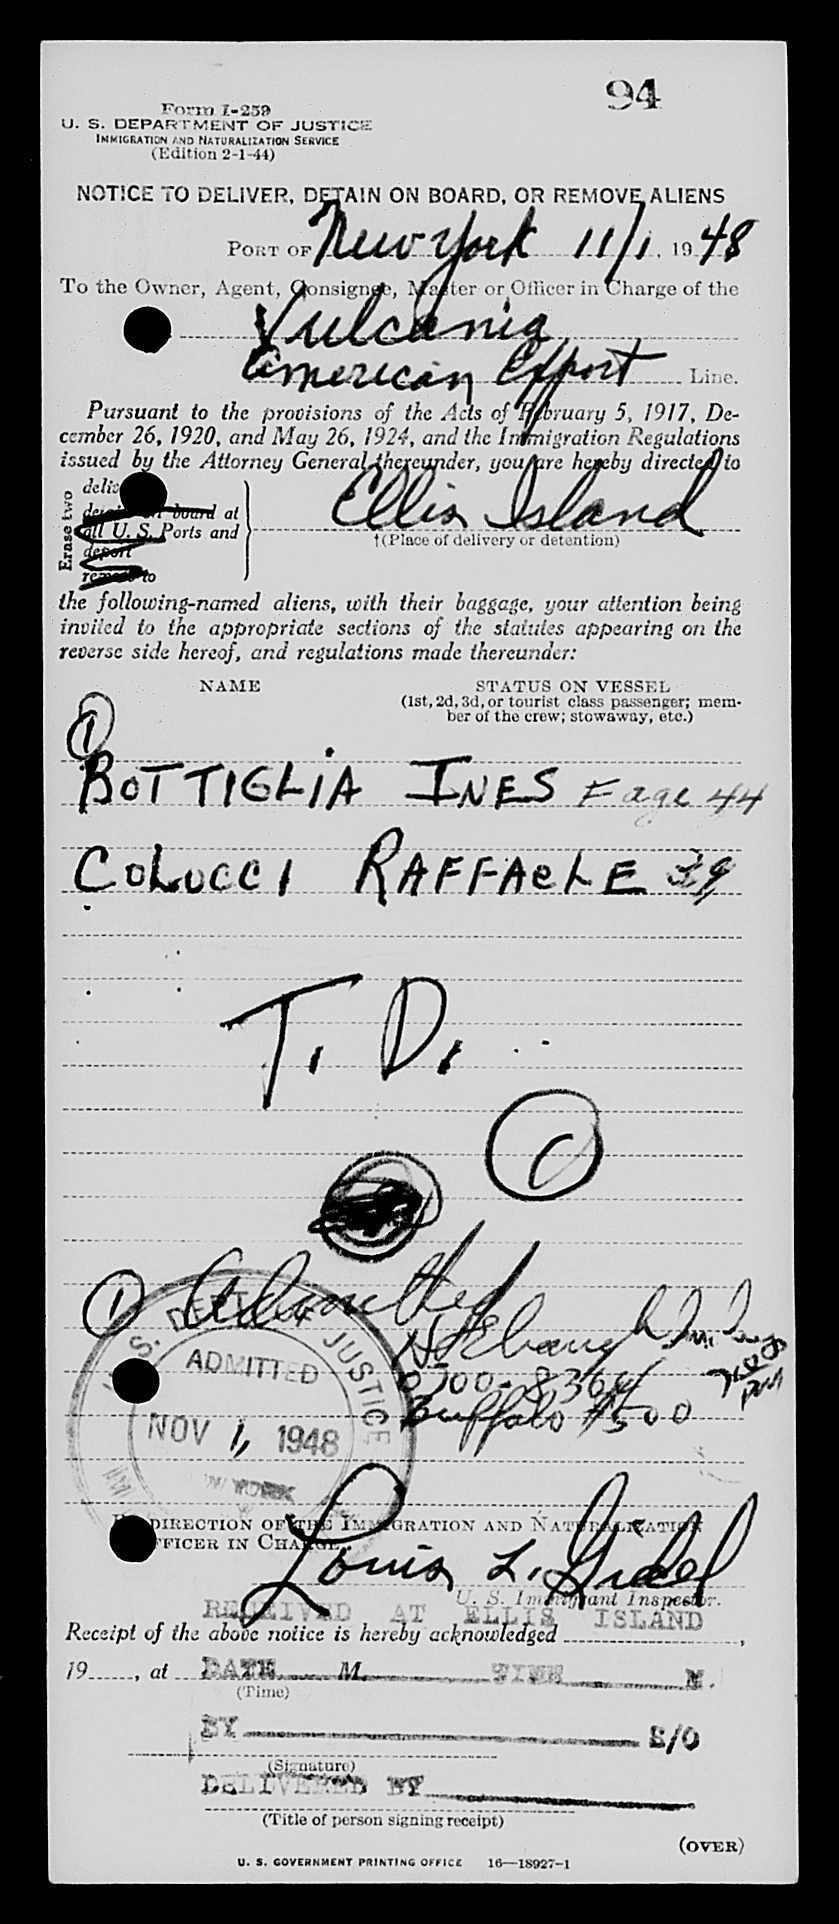 94
Form I-259
U. S. DEPARTMENT OF JUSTICE
IMMIGRATION AND NATURALIZATION SERVICE
(Edition 2-1-44)
NOTICE TO DELIVER, DETAIN ON BOARD, OR REMOVE ALIENS
PORT OF New York 11/1, 1948
To the Owner, Agent, Consignee, Master or Officer in Charge of the
Vulcania
American Export Line.
Pursuant to the provisions of the Acts of February 5, 1917, De-
cember 26, 1920, and May 26, 1924, and the Immigration Regulations
issued by the Attorney General thereunder, you are hereby directed to
Erase two
board at
all U. S. Ports and
deport
to
Ellis Island
†(Place of delivery or detention)
the following-named aliens, with their baggage, your attention being
invited to the appropriate sections of the statutes appearing on the
reverse side hereof, and regulations made thereunder:
NAME STATUS ON VESSEL
(1st, 2d, 3d, or tourist class passenger; mem-
ber of the crew; stowaway, etc.)
1
BOTTIGLIA INES F age 44
COLUCCI RAFFAELE 39
T. D.
C
1 Admitted
0700-
Buffalo #500
U. S. DEPT. OF JUSTICE
ADMITTED
NOV 1, 1948
NEW YORK
BY DIRECTION OF THE IMMIGRATION AND NATURALIZATION
OFFICER IN CHARGE.
Louis L.
U. S. Immigrant Inspector.
RECEIVED AT ELLIS ISLAND
Receipt of the above notice is hereby acknowledged ,
19 , at DATE M. TIME M.
(Time)
BY S/O
(Signature)
DELIVERED BY
(Title of person signing receipt)
(OVER)
U. S. GOVERNMENT PRINTING OFFICE 16—18927-1